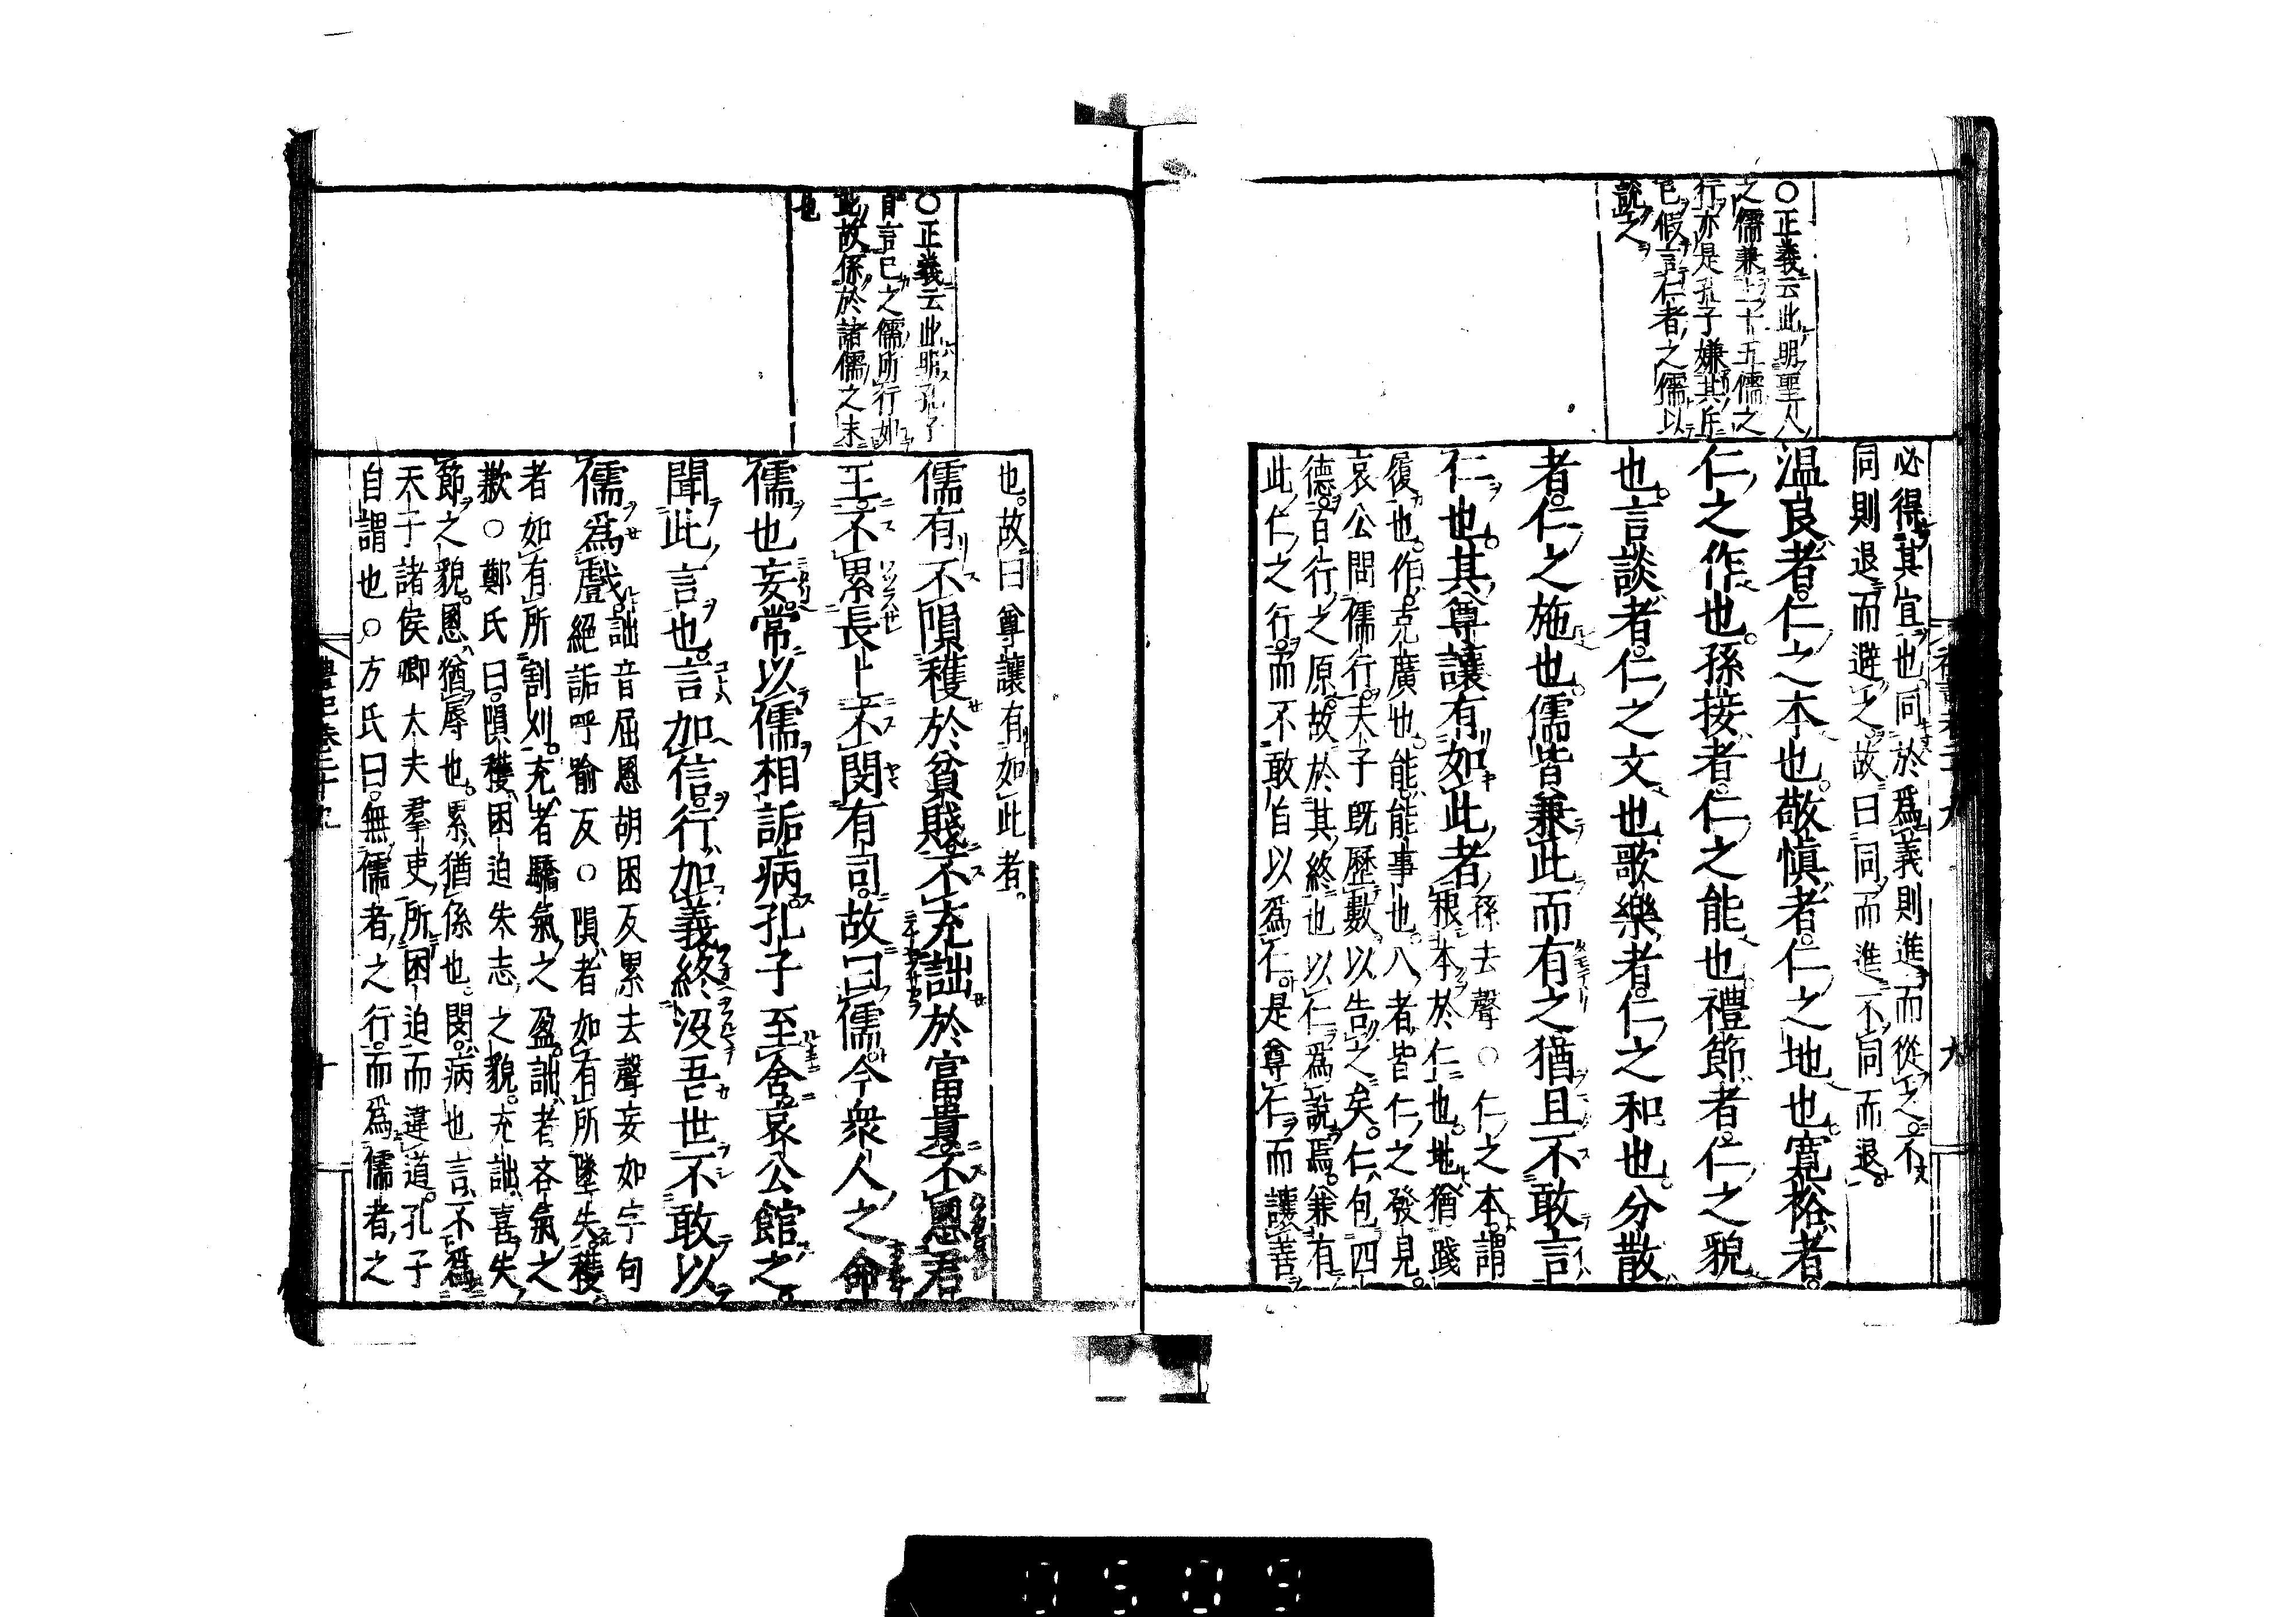 ○正義云此明聖人
之儒兼上十五儒之
行亦是孔子嫌其斥
已假言仁者之儒以
說之
必得其宜也同於爲義則進而從之不
同則退而避之故曰同而進不同而退
温良者仁之本也敬愼者仁之地也寬裕者
仁之作也孫接者仁之能也禮節者仁之貌
也言談者仁之文也歌樂者仁之和也分散
者仁之施也儒皆兼此而有之猶且不敢言
仁也其尊讓有如此者孫去聲○仁之本謂
根本於仁也地猶踐
履也作克廣也能能事也八者皆仁之發見
哀公問儒行夫子既歷數以告之矣仁包四
德百行之原故於其終也以仁爲說焉兼有
此仁之行而不敢自以爲仁是尊仁而讓善
九
○正義云此明孔子
自言已之儒所行如
此故係於諸儒之末
也
也故曰尊讓有如此者
儒有不隕穫於貧賤不充詘於富貴不慁君
王不累長上不閔有司故曰儒今衆人之命
儒也妄常以儒相詬病孔子至舍哀公館之
聞此言也言加信行加義終沒吾世不敢以
儒爲戲詘音屈慁胡困反累去聲妄如字句
絕詬呼喻反○隕者如有所墜失穫
者如有所割刈充者驕氣之盈詘者吝氣之
歉○鄭氏曰隕穫困迫失志之貌充詘喜失
節之貌慁猶辱也累猶係也閔病也言不爲
天子諸侯卿大夫羣吏所困迫而違道孔子
自謂也○方氏曰無儒者之行而爲儒者之
禮記卷二十九
十
0509